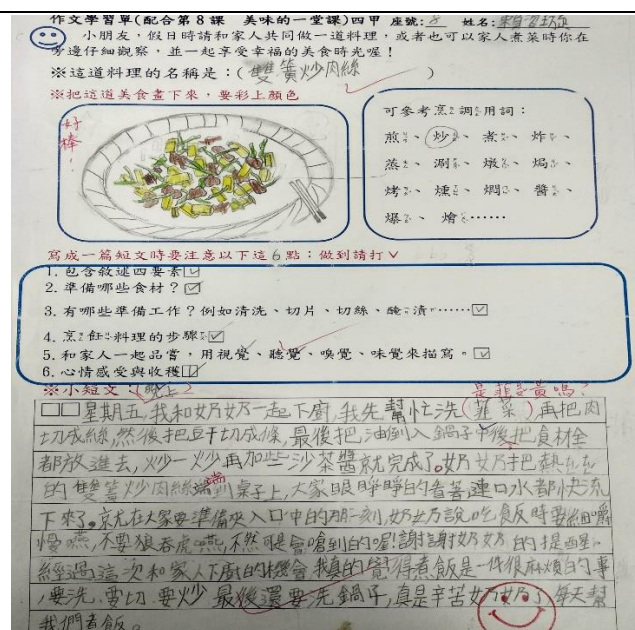 作文學習單(配合第8課 美味的一堂課)四甲 座號:8 姓名:
小朋友,假日時請和家人共同做一道料理,或者也可以家人煮菜時你在
旁邊仔細觀察,並一起享受幸福的美食時光喔!
※這道料理的名稱是:(雙簧炒肉絲)
※把這道美食畫下來,要彩上顏色
好棒!
可參考烹調用詞:
煎、炒、煮、炸、
蒸、涮、燉、焗、
烤、燻、燜、醬、
爆、燴……
寫成一篇短文時要注意以下這6點:做到請打ˇ
1. 包含敘述四要素
2. 準備哪些食材?
3. 有哪些準備工作?例如清洗、切片、切絲、醃漬……
4. 烹飪料理的步驟
5. 和家人一起品嘗,用視覺、聽覺、嗅覺、味覺來描寫。
6. 心情感受與收穫
※小短文:(晚上) 是韭黃嗎?
□□星期五,我和奶奶一起下廚,我先幫忙洗(韮菜)再把肉
切成絲,然後把豆干切成條,最後把油倒入鍋子中後把食材全
都放進去,炒一炒再加些沙茶醬就完成了。奶奶把熱
的雙簧炒肉絲端到桌子上,大家眼睜睜的看著連口水都快流
下來了。就在大家要準備夾入口中的那一刻,奶奶說吃飯時要細嚼
慢嚥,不要狼吞虎嚥,不然可是會嗆到的喔!謝謝奶奶的提醒。
經過這次和家人下廚的機會,我真的覺得煮飯是一件很麻煩的事
,要洗、要切、要炒、最後還要洗鍋子,真是辛苦奶奶了,每天幫
我們煮飯。